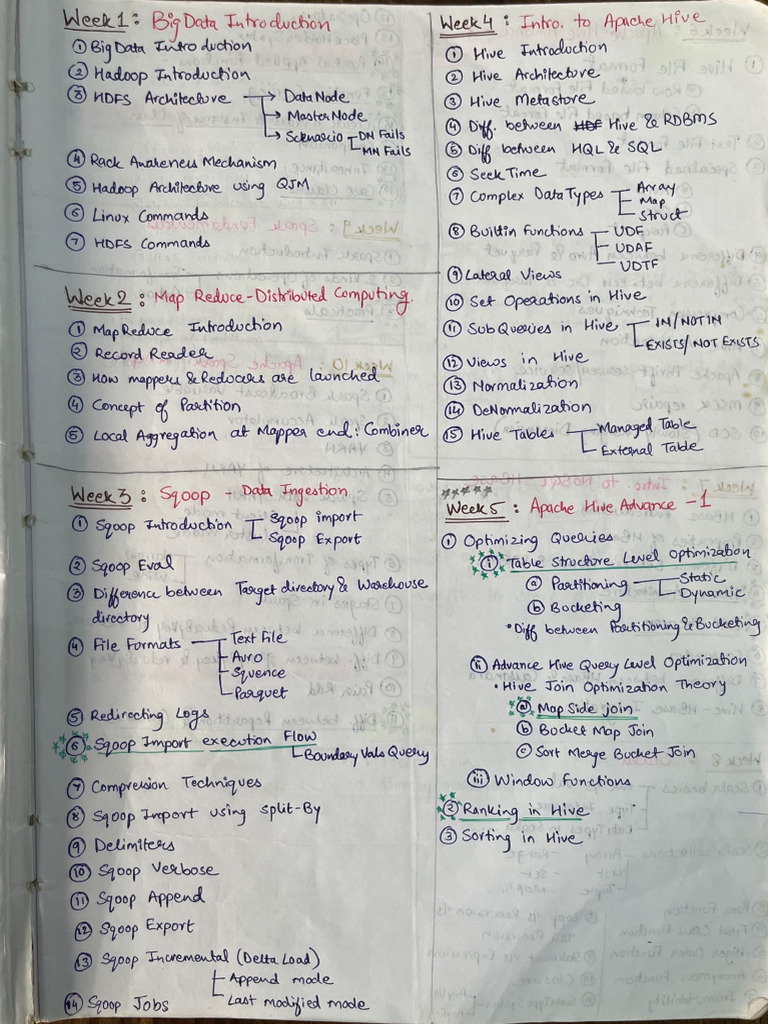 Week 1 : Big Data Introduction
① Big Data Introduction
② Hadoop Introduction
③ HDFS Architecture → Data Node
→ Master Node
→ Scenario - DN Fails
MN Fails
④ Rack Awareness Mechanism
⑤ Hadoop Architecture using QJM
⑥ Linux Commands
⑦ HDFS Commands
Week 2 : Map Reduce - Distributed Computing.
① MapReduce Introduction
② Record Reader
③ How mappers & Reducers are launched
④ Concept of Partition
⑤ Local Aggregation at Mapper end : Combiner
Week 3 : Sqoop - Data Ingestion
① Sqoop Introduction - Sqoop import
Sqoop Export
② Sqoop Eval
③ Difference between Target directory & Warehouse
directory
④ File Formats - Text File
Avro
Squence
Parquet
⑤ Redirecting Logs
⑥ Sqoop Import execution Flow
Boundary Vals Query
⑦ Compression Techniques
⑧ Sqoop Import using split-By
⑨ Delimiters
⑩ Sqoop Verbose
⑪ Sqoop Append
⑫ Sqoop Export
⑬ Sqoop Incremental (Delta Load)
Append mode
Last modified mode
⑭ Sqoop Jobs
Week 4 : Intro. to Apache Hive
① Hive Introduction
② Hive Architecture
③ Hive Metastore
④ Diff. between Hive & RDBMS
⑤ Diff between HQL & SQL
⑥ Seek Time
⑦ Complex Data Types - Array
Map
Struct
⑧ Builtin Functions - UDF
UDAF
UDTF
⑨ Lateral Views
⑩ Set Operations in Hive
⑪ SubQueries in Hive - IN/NOT IN
EXISTS/NOT EXISTS
⑫ Views in Hive
⑬ Normalization
⑭ DeNormalization
⑮ Hive Tables - Managed Table
External Table
Week 5 : Apache Hive Advance - 1
① Optimizing Queries
ⓘ Table Structure Level Optimization
ⓐ Partitioning - Static
Dynamic
ⓑ Bucketing
• Diff between Partitioning & Bucketing
ii Advance Hive Query Level Optimization
• Hive Join Optimization Theory
ⓐ Map Side join
ⓑ Bucket Map Join
ⓒ Sort Merge Bucket Join
iii Window Functions
② Ranking in Hive
③ Sorting in Hive